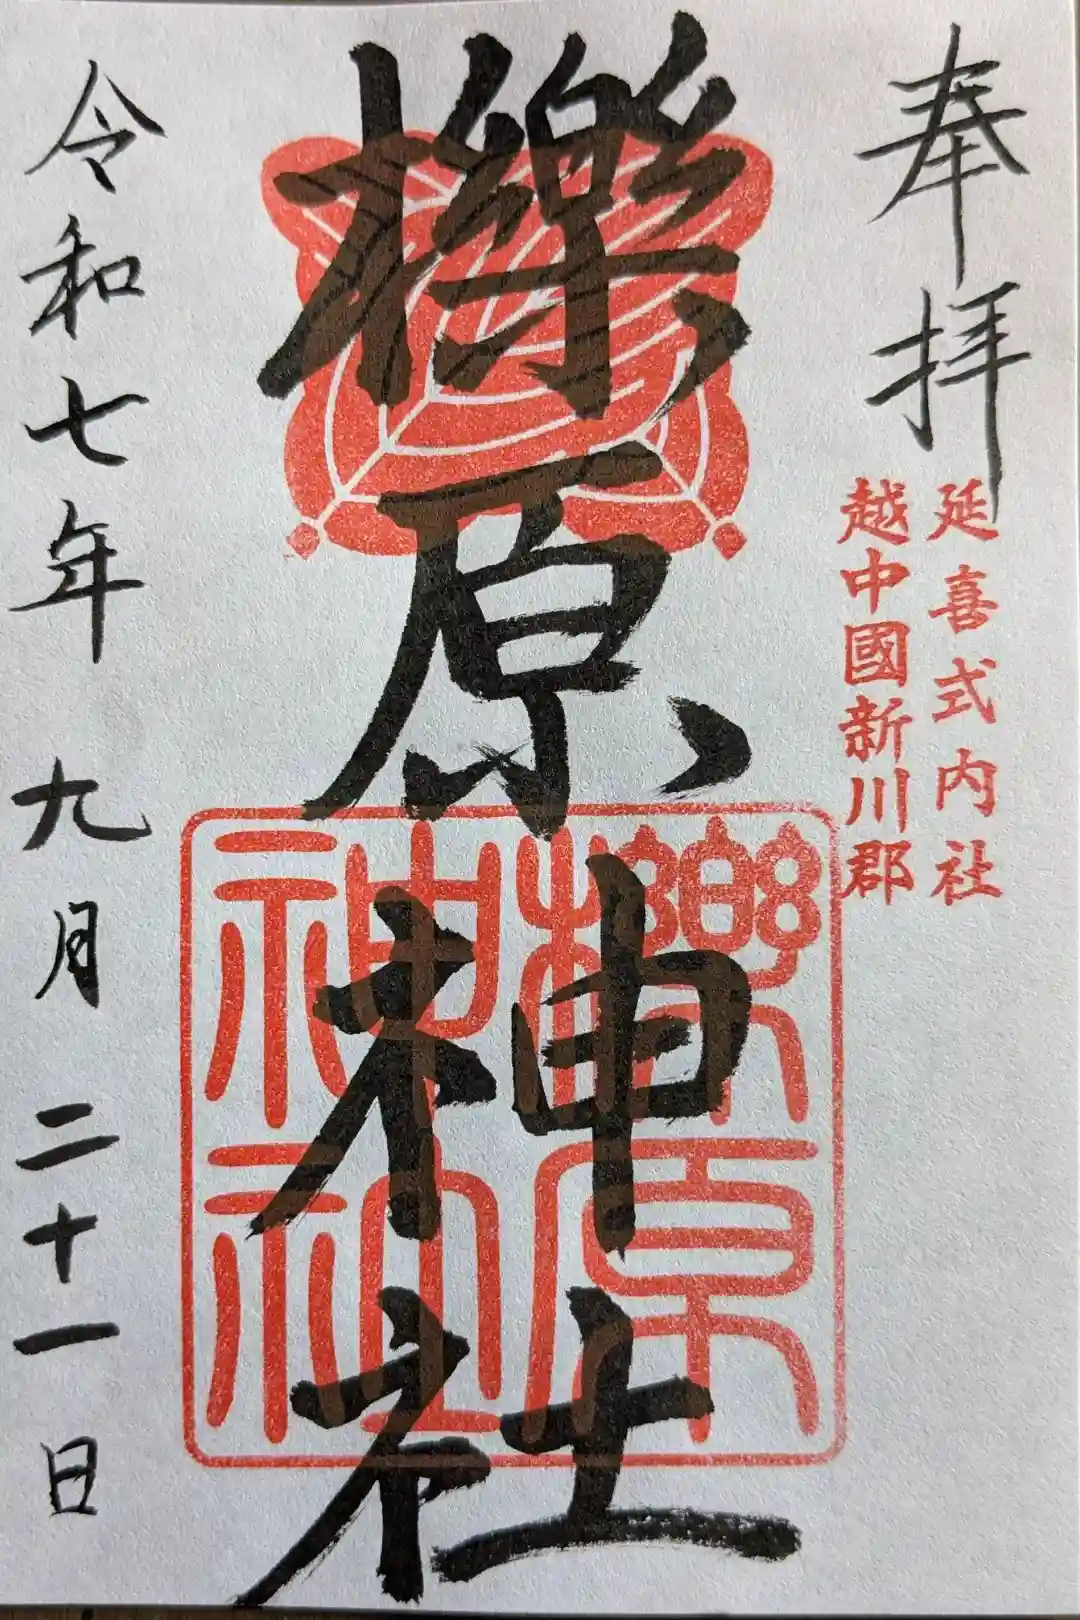 奉拝
延喜式内社
越中國新川郡
櫟原神社
櫟原
神社
令和七年九月二十一日